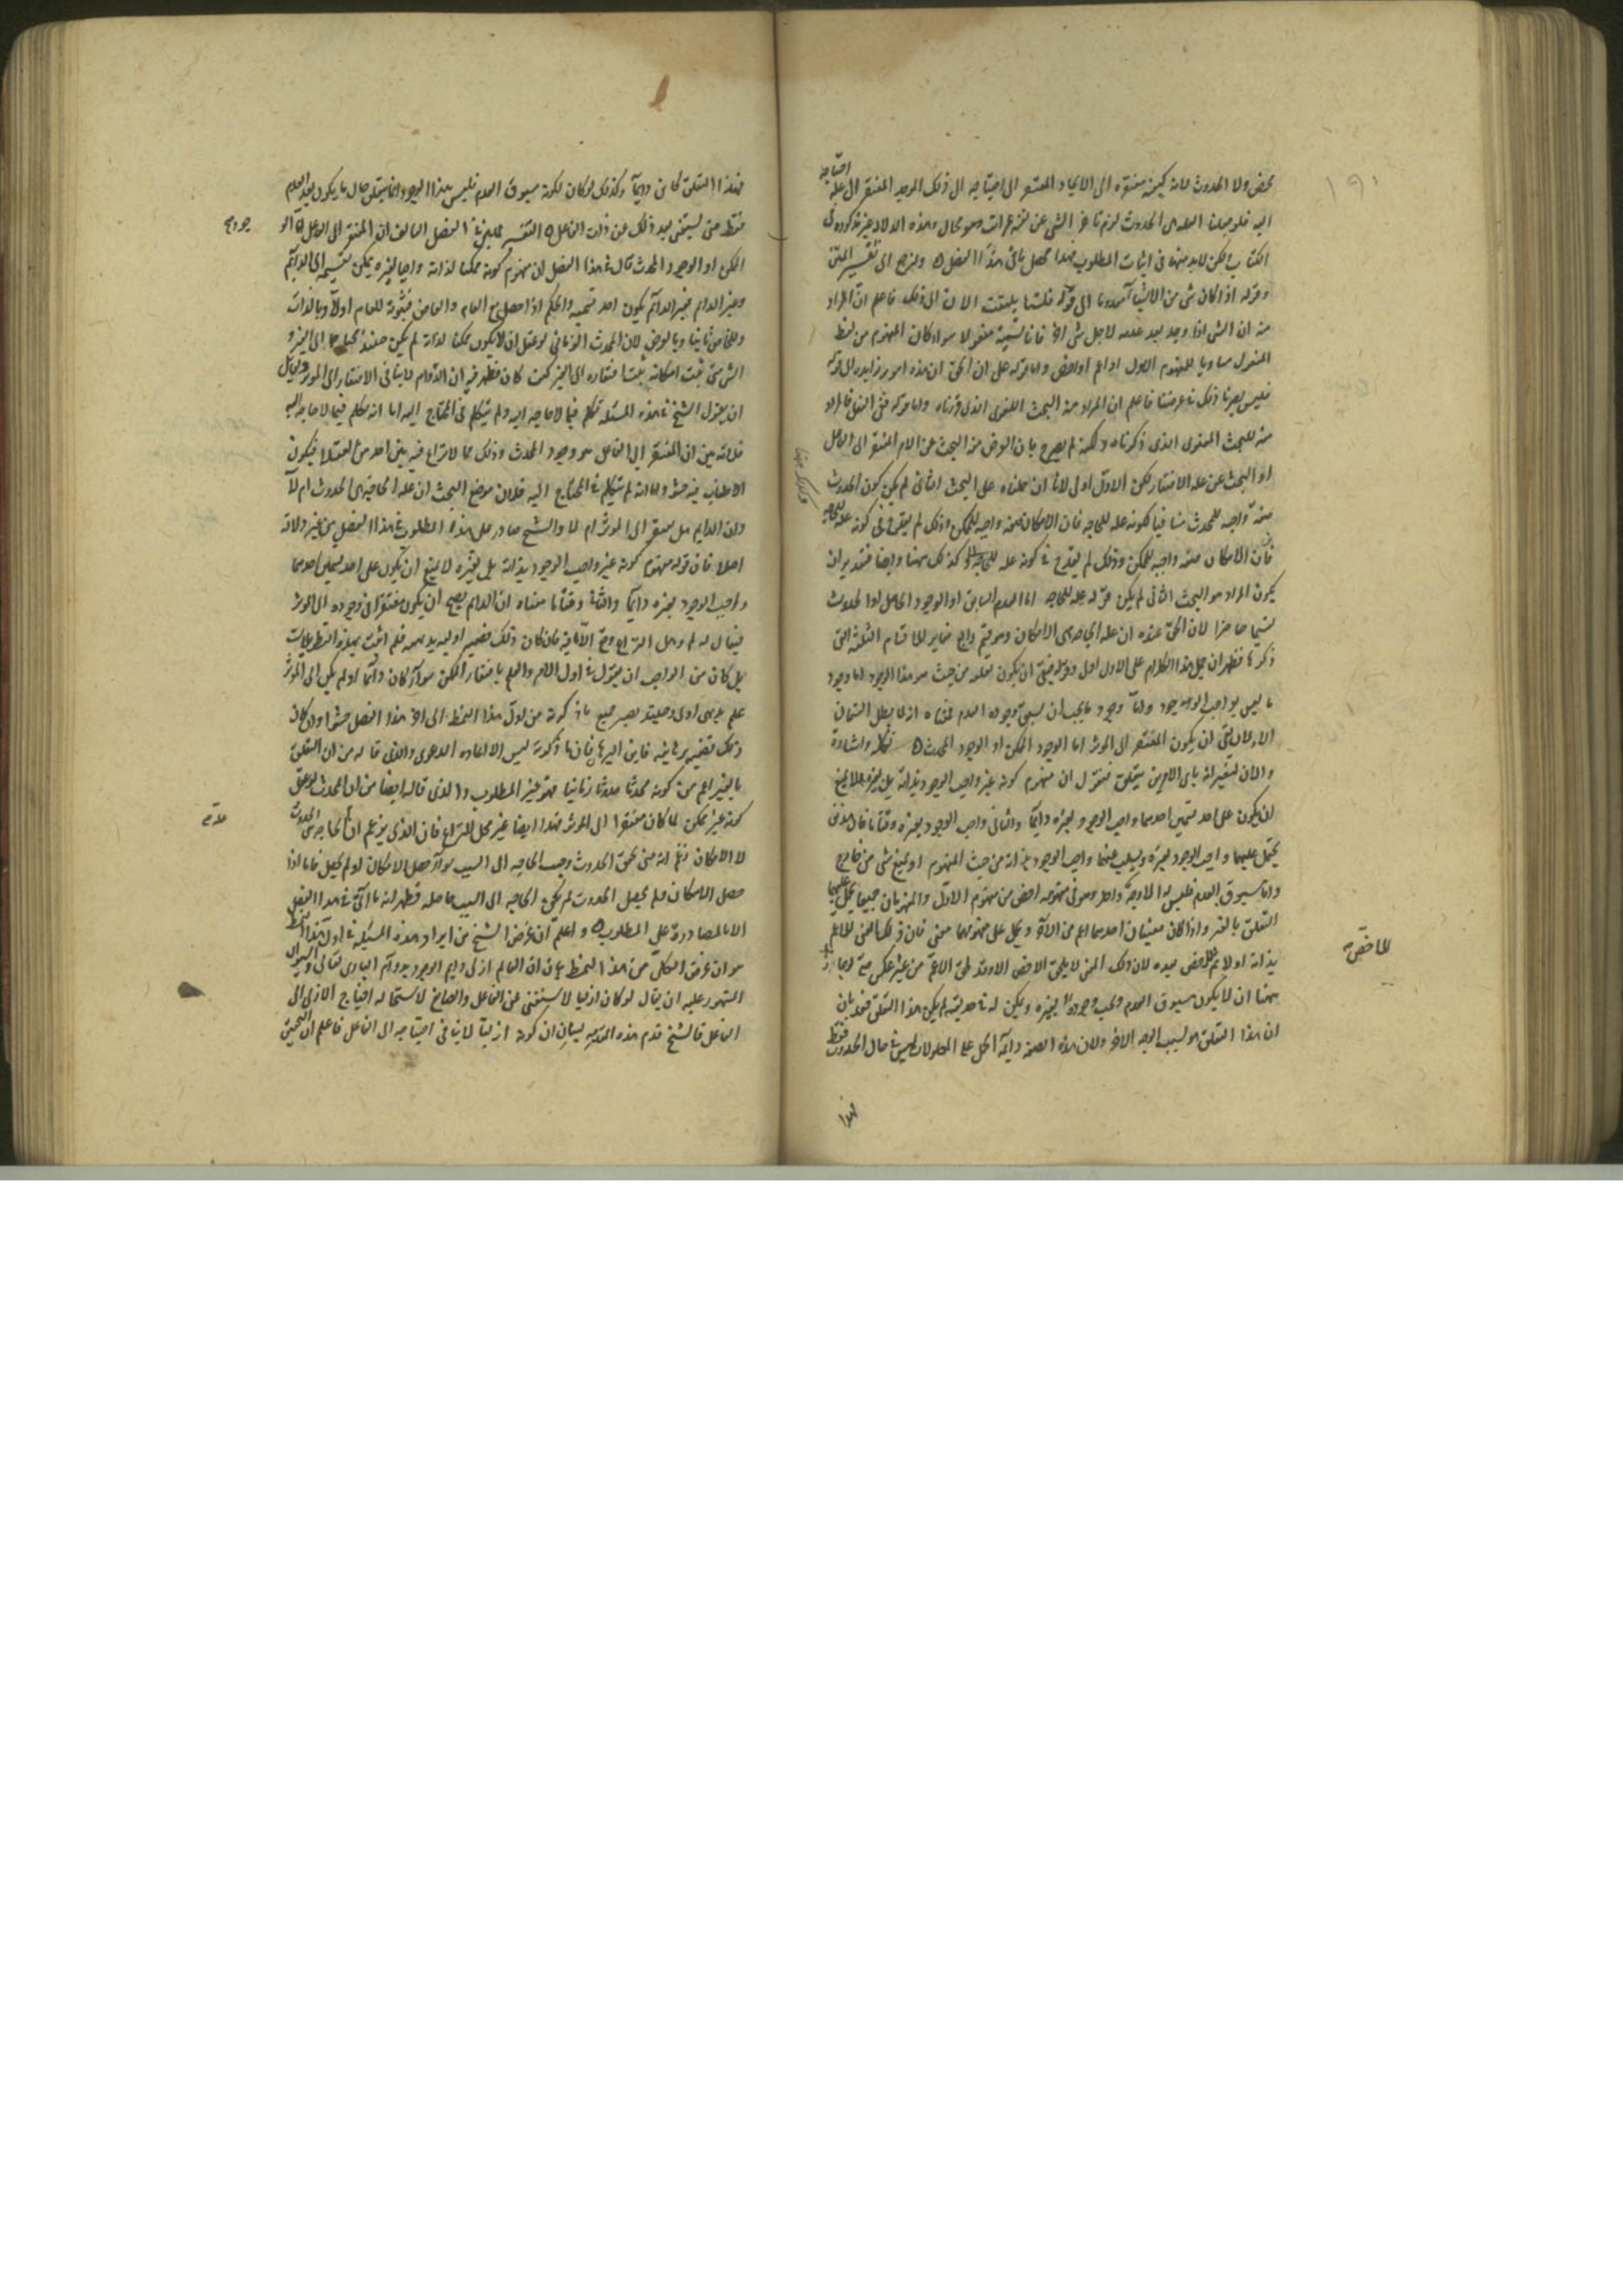 محض ولا الحدوث لانه كيفية مفتقرة الى الايجاد المفتقر الى احتياجه الى ذلك الموجد المفتقر الى علة احتياجه
اليه فلو جعلنا العلة هي الحدوث لزم تاخر الشي عن نفسه بمراتب وهو محال وهذه الدلالة غير مذكورة في
الكتاب ولكن لابد منها في اثبات المطلوب فهذا محصل باقي هذا الفصل ولنرجع الى تفسير المتن
وقوله اذا كان شي من الاشياء معدوما الى قوله فلسنا نلتفت الان الى ذلك فاعلم ان المراد
منه ان الشي اذا وجد بعد عدمه لاجل شي اخر فانا نسميه مفعولا سواء كان المفهوم من لفظ
المفعول مساويا للمفهوم الاول او اعم او اخص واما قوله على ان الحق ان هذه امور زايدة الى قوله
فليس يضرنا ذلك في غرضنا فاعلم ان المراد منه البحث اللغوي الذي قررناه واما قوله ففي الفعل فالمراد
منه البحث المعنوي الذي ذكرناه ولكنه لم يصرح بان الغرض منه البحث عن الامر المفتقر الى الفاعل
او البحث عن علة الافتقار لكن الاول اولى لانا ان حملناه على البحث الثاني لم يكن كون الحدوث
صفة واجبة للمحدث منافيا لكونه علة للحاجة فان الامكان صفة واجبة للممكن وذلك لم يقدح في كونه علة للحاجة
فان الامكان صفة واجبة للممكن وذلك لم يقدح في كونه علة للحاجة فكذلك ههنا وايضا فبتقدير ان
يكون المراد هو البحث الثاني لم يكن قوله علة للحاجة اما العدم السابق او الوجود الحاصل او الحدوث
تقسيما حاصرا لان الحق عنده ان علة الحاجة هي الامكان وهو قسم رابع مغاير للاقسام الثلثة التي
ذكرها فظهر ان حمل هذا الكلام على الاول اولى وقوله فبقي ان يكون تعلقه من حيث هو هذا الوجود اما وجود
ما ليس بواجب الوجود واما وجود ما يجب ان يسبق وجوده العدم فمعناه انه لما بطل القسمان
الاولان بقي ان يكون المفتقر الى الموثر اما الوجود الممكن او الوجود المحدث تكملة واشارة
والان لنعتبر انه باي الامرين يتعلق فنقول ان مفهوم كونه غير واجب الوجود بذاته بل بغيره لا يمنع
ان يكون على احد قسمين احدهما واجب الوجود بغيره دائما والثاني واجب الوجود بغيره وقتا ما فان هذين
يحمل عليهما واجب الوجود بغيره ويسلب عنهما واجب الوجود بذاته من حيث المفهوم او يمنع شي من خارج
واما مسبوق العدم فليس له الا وجه واحد وهو في مفهومه اخص من مفهوم الاول والمفهومان جميعا يحمل عليهما
التعلق بالغير واذا كان معنيان احدهما اعم من الاخر ويحمل على مفهومهما معنى فان ذلك المعنى للاعم
بذاته اولا وللاخص بعده لان ذلك المعنى لا يلحق الاخص الا وقد لحق الاعم من غير عكس حتى لو جاز
ههنا ان لا يكون مسبوق العدم يجب وجوده بغيره ويمكن له في حد نفسه لم يكن هذا التعلق فقد بان
ان هذا التعلق هو بسبب الوجه الاخر ولان هذه الصفة دائمة الحمل على المعلولات ليس في حال الحدوث فقط
فهذا
للاخص
فهذا التعلق كاين دائما وكذلك لو كان لكونه مسبوق العدم فليس هذا الوجود انما يتعلق حال ما يكون بعد العدم
فقط حتى يستغني بعد ذلك عن ذلك الفاعل التفسير لما بين في الفصل السالف ان المفتقر الى الفاعل
الممكن او الوجود المحدث قال في هذا الفصل ان مفهوم كونه ممكنا لذاته واجبا لغيره يمكن تقسيمه الى الدائم
وغير الدائم فغير الدائم يكون احد قسميه والحكم اذا حصل مع العام والخاص فثبوته للعام اولا وبالذات
وللخاص ثانيا وبالعرض لان المحدث الزماني لو عقل ان لا يكون ممكنا لذاته لم يكن حينئذ محتاجا الى الغير و
الشي متى ثبت امكانه ثبت افتقاره الى الغير كيف كان فظهر فيه ان الدوام لا ينافي الافتقار الى الموثر ولقايل
ان يقول الشيخ في هذه المسئلة تكلم فيما لا حاجة اليه ولم يتكلم في المحتاج اليه اما انه تكلم فيما لا حاجة اليه
فلانه بين ان المفتقر الى الفاعل هو وجود المحدث وذلك مما لا نزاع فيه بين احد من العقلاء فيكون
الاطناب فيه حشو واما انه لم يتكلم في المحتاج اليه فلان موضع البحث ان علة الحاجة هي الحدوث ام لا
وان الدايم هل يفتقر الى الموثر ام لا والشيخ صادر على هذا المطلوب في هذا الفصل من غير دلالة
اصلا فان قوله مفهوم كونه غير واجب الوجود بذاته بل بغيره لا يمنع ان يكون على احد قسمين احدهما
واجب الوجود بغيره دائما والثاني وقتا ما معناه ان الدايم يصح ان يكون مفتقرا في وجوده الى الموثر
فيقال له لم وهل النزاع وقع الا فيه فان كان ذلك قضية اولية بديهية فلم اثبت بهذه التطويلات
بل كان من الواجب ان يقول في اول الامر والعلم بافتقار الممكن سواء كان دائما او لم يكن الى الموثر
علم بديهي اولى وحينئذ يصير جميع ما ذكرته من اول هذا النمط الى اخر هذا الفصل حشوا وان كان
ذلك قضية برهانية فاين البرهان فان ما ذكرته ليس الا اعادة الدعوى والذي قاله من ان التعلق
بالغير اعم من كونه محدثا حدوثا زمانيا فهو غير المطلوب والذي قاله ايضا من ان المحدث لو عقل
كونه غير ممكن لما كان مفتقرا الى الموثر فهذا ايضا غير محل النزاع فان الذي يزعم ان علة الحاجة هي الحدوث
لا الامكان زعم انه متى تحقق الحدوث وجب الحاجة الى السبب سواء حصل الامكان او لم يحصل فاما اذا
حصل الامكان فلم يحصل الحدوث لم تكن الحاجة الى السبب حاصلة فظهر انه ما اتى في هذا الفصل
الا بالمصادرة على المطلوب واعلم ان غرض الشيخ من ايراد هذه المسئلة في اول هذا النمط
هو ان غرض الكل من هذا النمط بيان ان العالم ازلي دايم الوجود بدوام الباري تعالى والسؤال
المشهور عليه ان يقال لو كان ازليا لاستغنى عن الفاعل والصانع لاستحالة احتياج الازلي الى
الفاعل فالشيخ قدم هذه المقدمة لبيان ان كونه ازليا لا ينافي احتياجه الى الفاعل فاعلم ان التحقيق